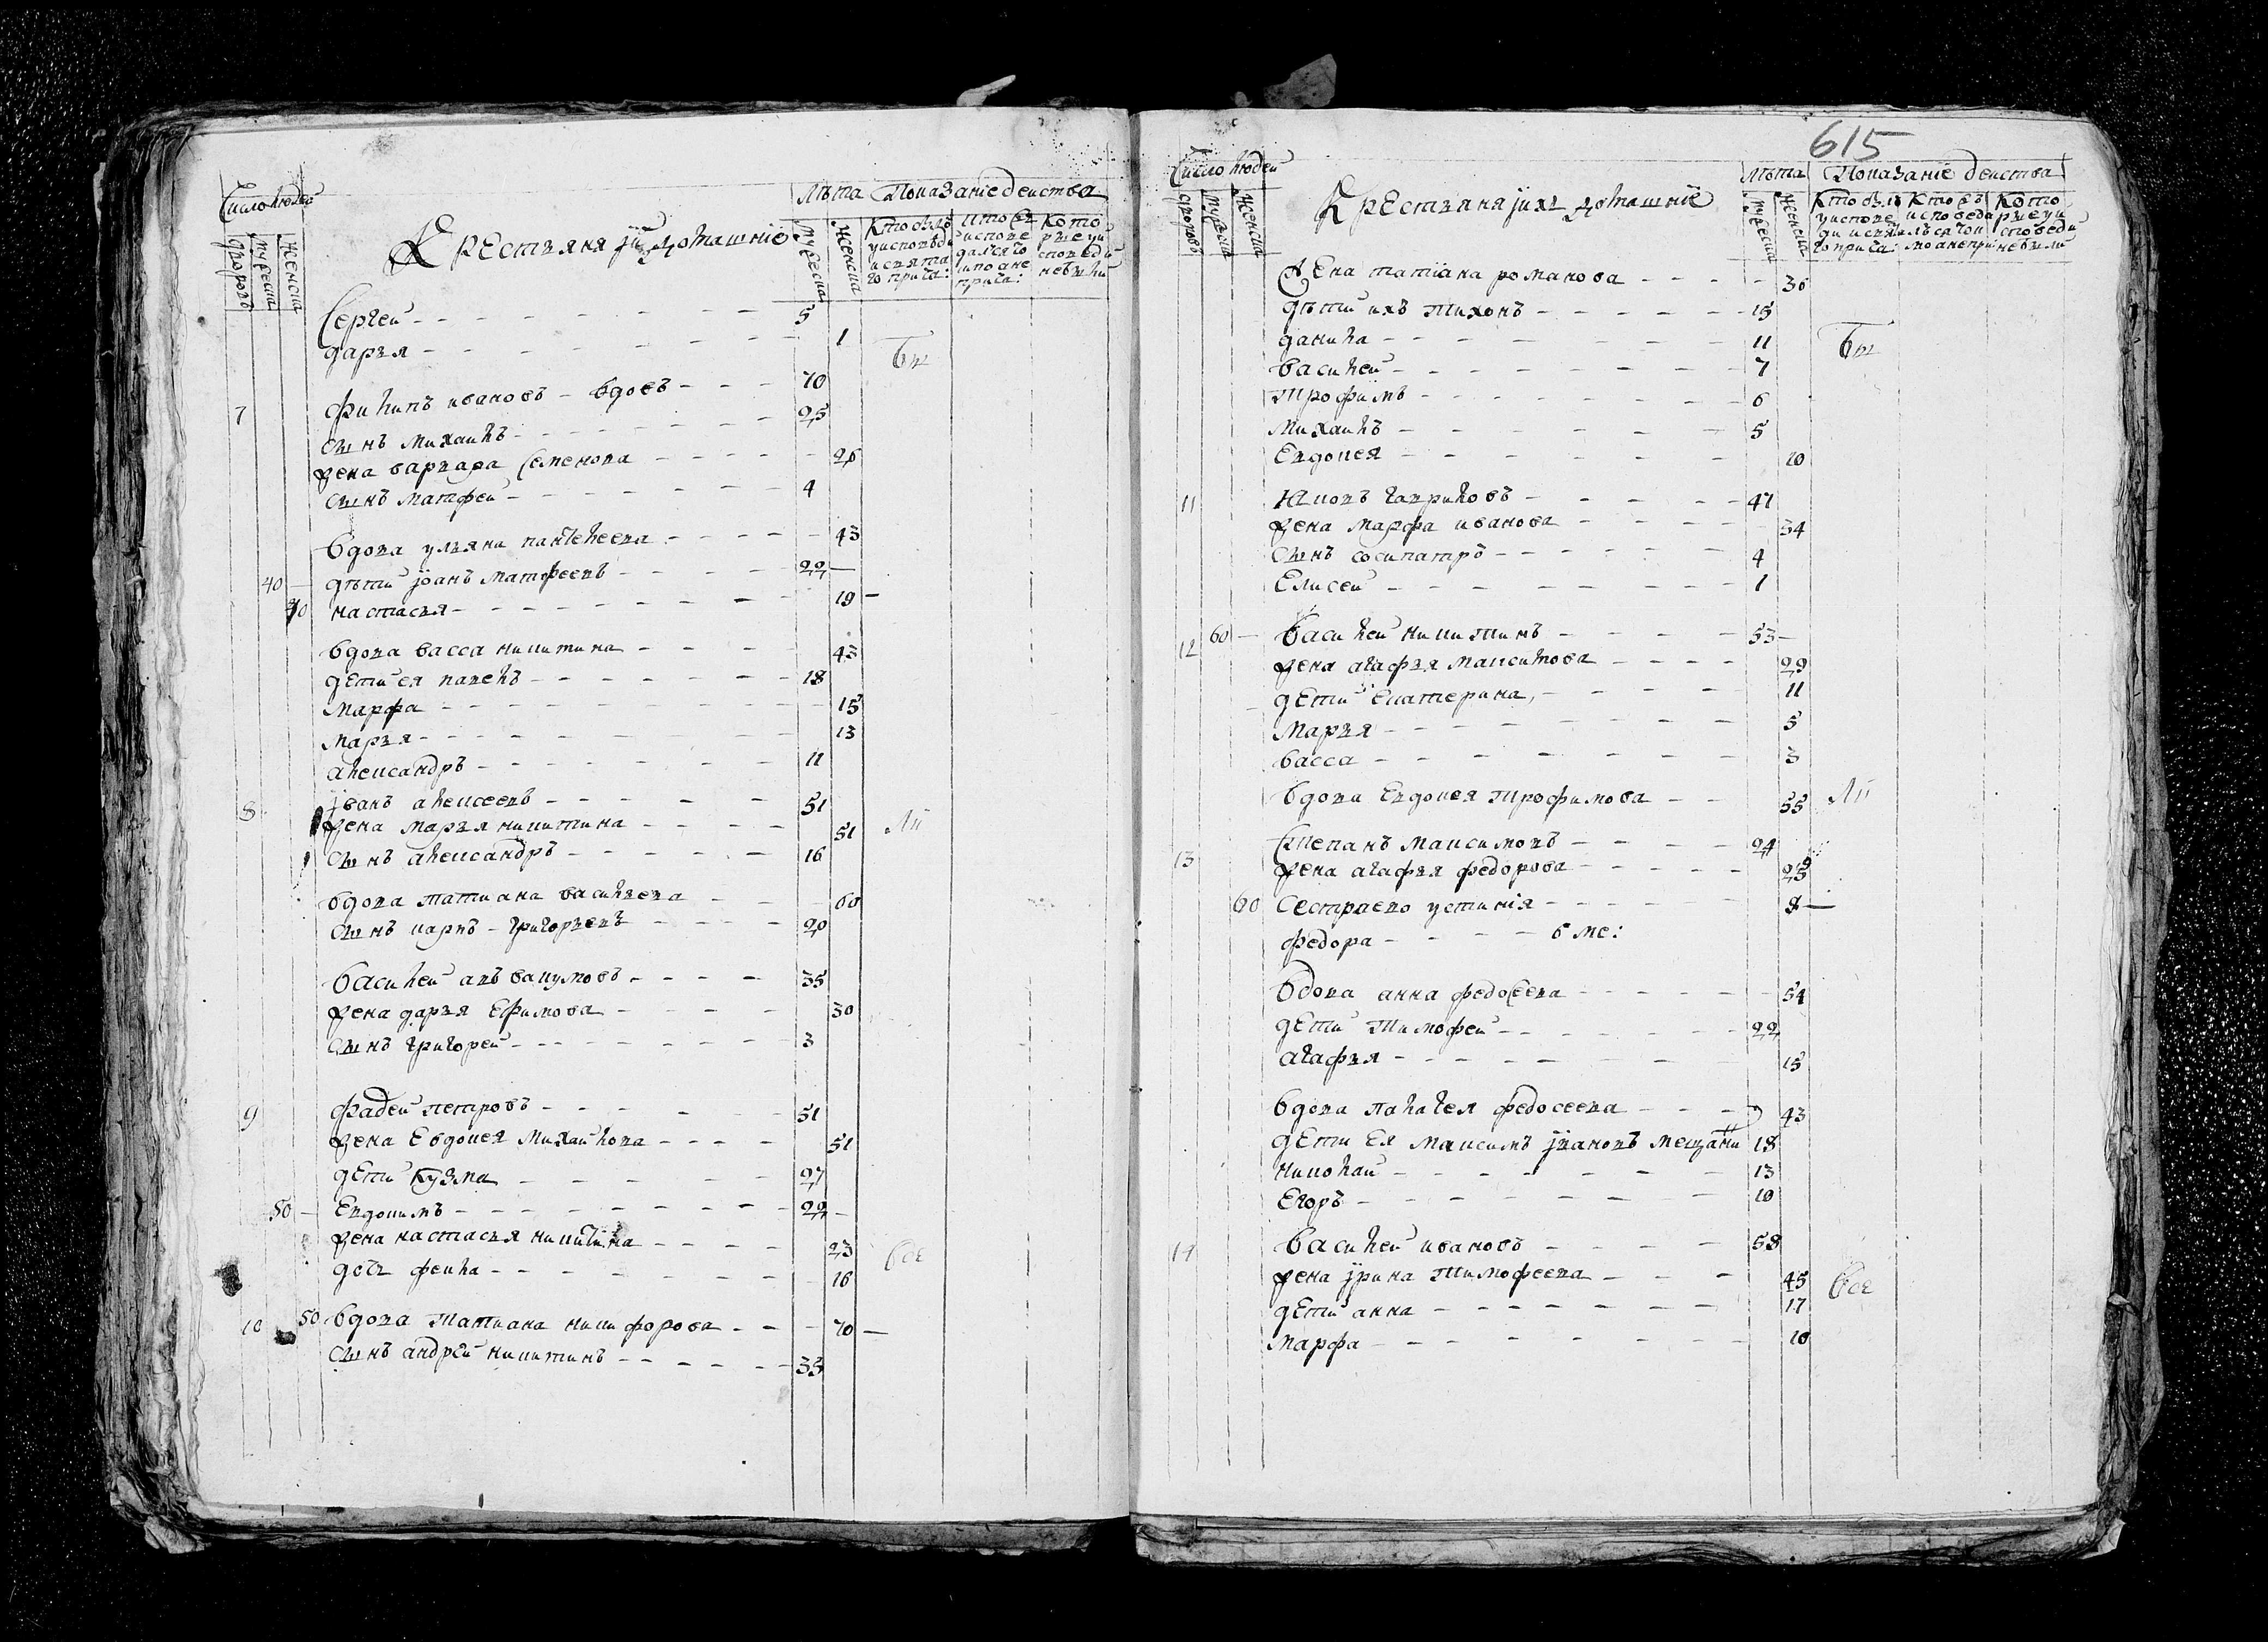 Число людей
Лѣта Показание действа
Крестьяня и ихъ домашние
дворовъ
мужеска
женска
мужеска
женска
Кто былъ у исповеди и святаго прича:
кто исповедался токмо а не прича:
Которые у исповеди не были
Сергей 5
дарья 1
Бы
7 филипъ ивановъ - вдовъ 70
сынъ михаилъ 25
жена варвара Семенова 26
сынъ матфей 4
вдова ульяна пантелеева 43
40 дѣти иванъ матфеевъ 22
40 настасья 19
вдова васса никитина 43
дети ея павелъ 18
марфа 15
марья 13
александръ 11
8 иванъ алексеевъ 51
жена марья никитина 51
Ли
сынъ александръ 16
вдова татиана васильева 60
сынъ карпъ - григорьевъ 20
василей авъвакумовъ 35
жена дарья Ефимова 30
сынъ григорей 3
9 фадей петровъ 51
жена Евдокея михайлова 51
дети кузма 27
50 Евдокимъ 22
жена настасья никитина 23
все
дочь фекла 16
10 50 вдова татиана никифорова 70
сынъ андрей никитинъ 33
615
Число людей
Лѣта Показание действа
Крестьяня и ихъ домашние
дворовъ
мужеска
женска
мужеска
женска
Кто былъ у исповеди и святаго прича:
Кто исповедался токмо а не при
Которые у исповеди не были
жена татиана романова 36
дѣти ихъ тихонъ 15
данила 11
Бы
василей 7
трофимъ 6
михаилъ 5
Евдокея 10
11 Яковъ гавриловъ 47
жена марфа иванова 34
сынъ сосипатръ 4
Елисей 1
12 60 василей никитинъ 53
жена агафья максимова 29
дети Екатерина 11
марья 5
васса 3
вдова Евдокея трофимова 55
Ли
13 Степанъ максимовъ 24
жена агафья федорова 25
60 Сестра ево устиния 8
федора 6 ме:
вдова анна федосеева 54
дети тимофей 22
агафья 15
вдова палагея федосеева 43
дети Ея максимъ ивановъ 18
николай 13
Егоръ 10
14 василей ивановъ 58
жена ирина тимофеева 45
все
дети анна 17
марфа 10